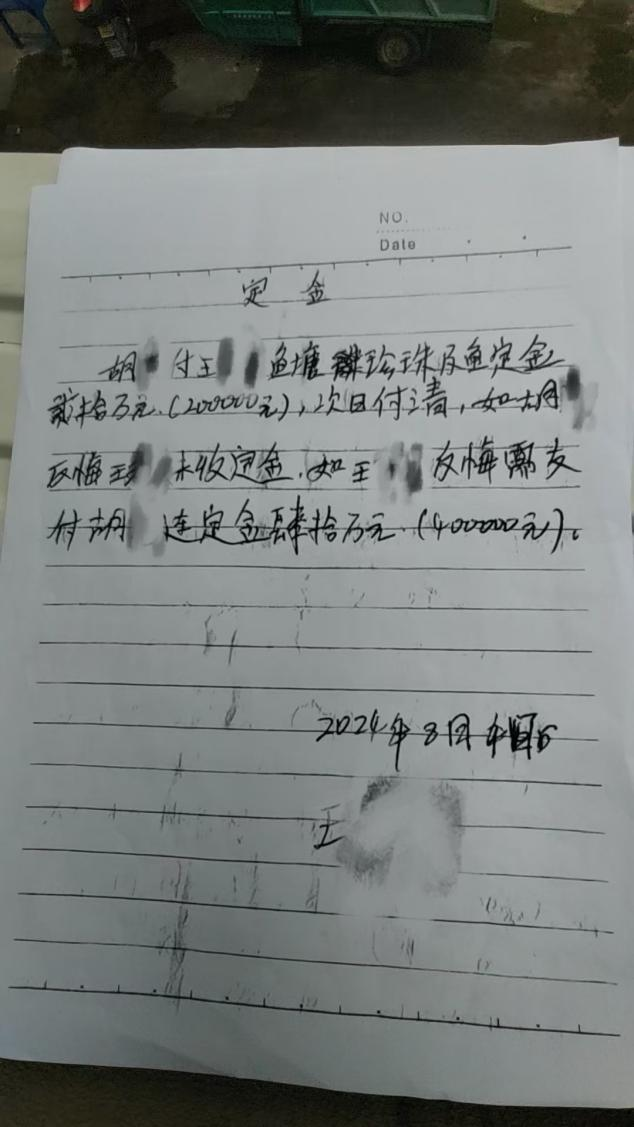 NO.
Date
定金
胡 付王 鱼塘珍珠及鱼定金
贰拾万元.(200000元),次日付清,如胡
反悔王 未收定金.如王 反悔需支
付胡 连定金肆拾万元.(400000元)。
2024年8月 日
王